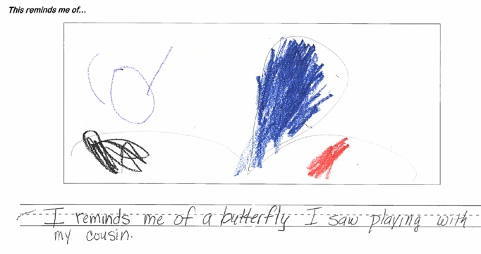 This reminds me of...
I reminds me of a butterfly I saw playing with
my cousin.